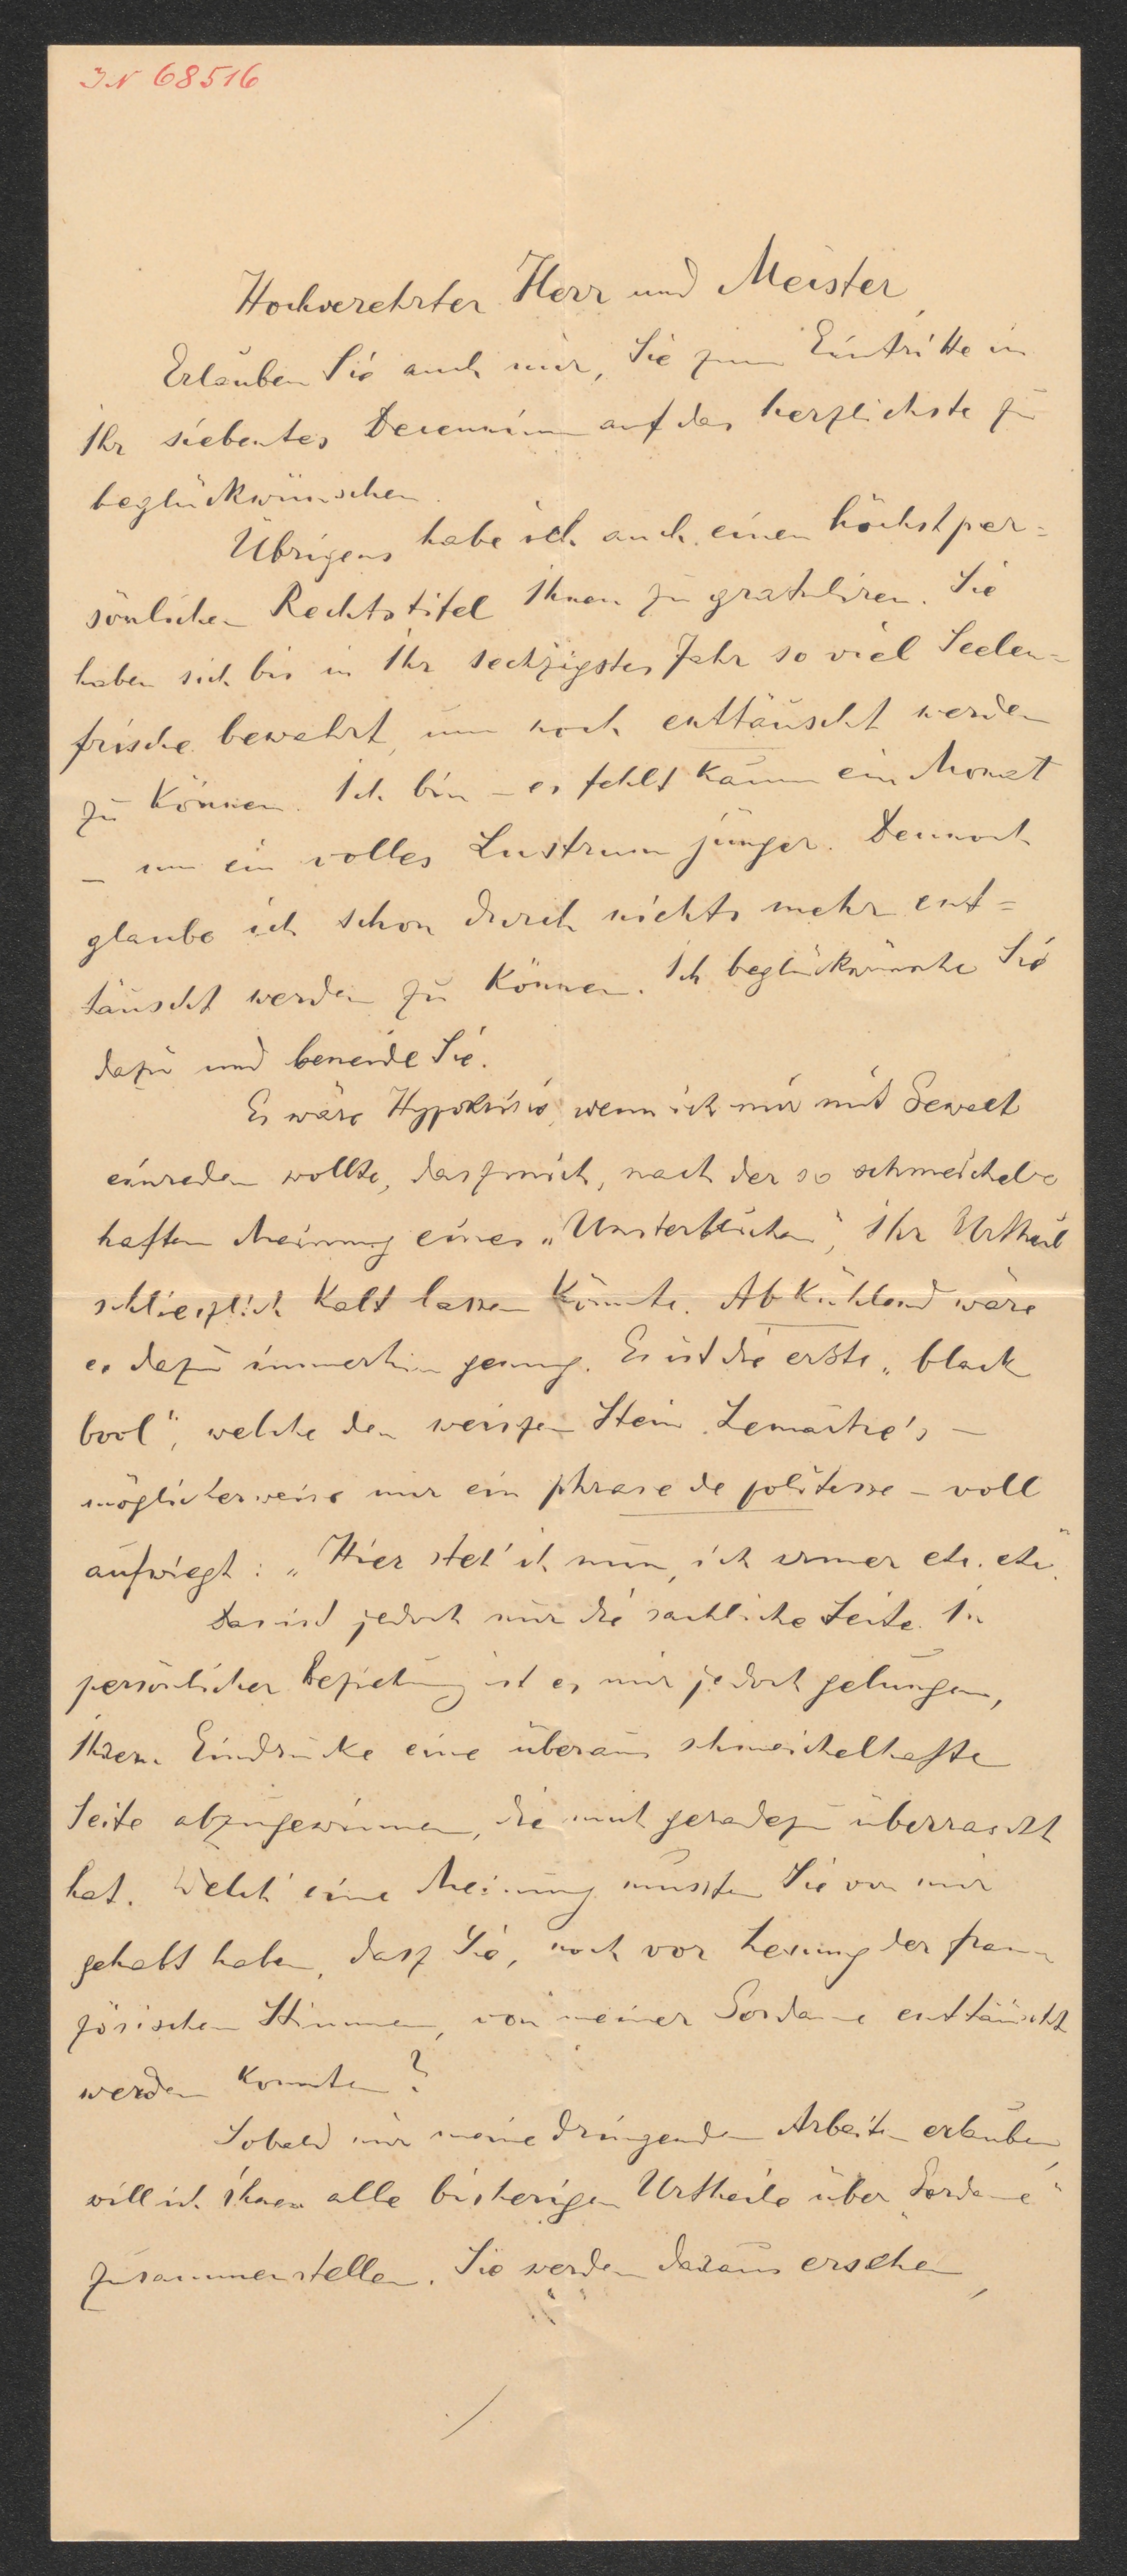 IN 68516
Hochverehrter Herr und Meister,
Erlauben Sie auch mir, Sie zum Eintritte in
Ihr siebentes Decennium auf das herzlichste zu
beglückwünschen.
Übrigens habe ich auch einen höchst per=
sönlichen Rechtstitel Ihnen zu gratuliren. Sie
haben sich bis in Ihr sechzigstes Jahr so viel Seelen=
frische bewahrt, um noch enttäuscht werden
zu können. Ich bin – es fehlt kaum ein Monat
– um ein volles Lustrum jünger. Dennoch
glaube ich schon durch nichts mehr ent=
täuscht werden zu können. Ich beglückwünsche Sie
dazu und beneide Sie.
Es wäre Hypokrisie, wenn ich mir mit Gewalt
einreden wollte, dasz mich, nach der so schmeichel=
haften Meinung eines „Unsterblichen", Ihr Urtheil
schlieszlich kalt lassen könnte. Abkühlend wäre
es dazu immerhin genug. Es ist die erste „black
bool", welche den weiszen Stein Lemaître's –
möglicherweise nur ein phrase de politesse – voll
aufwiegt: „Hier steh' ich nun, ich armer etc. etc."
Das ist jedoch nur die sachliche Seite. In
persönlicher Beziehung ist es mir jedoch gelungen,
Ihrem Eindrucke eine überaus schmeichelhafte
Seite abzugewinnen, die mich geradezu überrascht
hat. Welch' eine Meinung mussten Sie von mir
gehabt haben, dasz Sie, noch vor Lesung der fran=
zösischen Stimmen, von meiner Sordane enttäuscht
werden konnten?
Sobald mir meine dringenden Arbeiten erlauben,
will ich Ihnen alle bisherigen Urtheile über „Sordane"
zusammenstellen. Sie werden daraus ersehen,